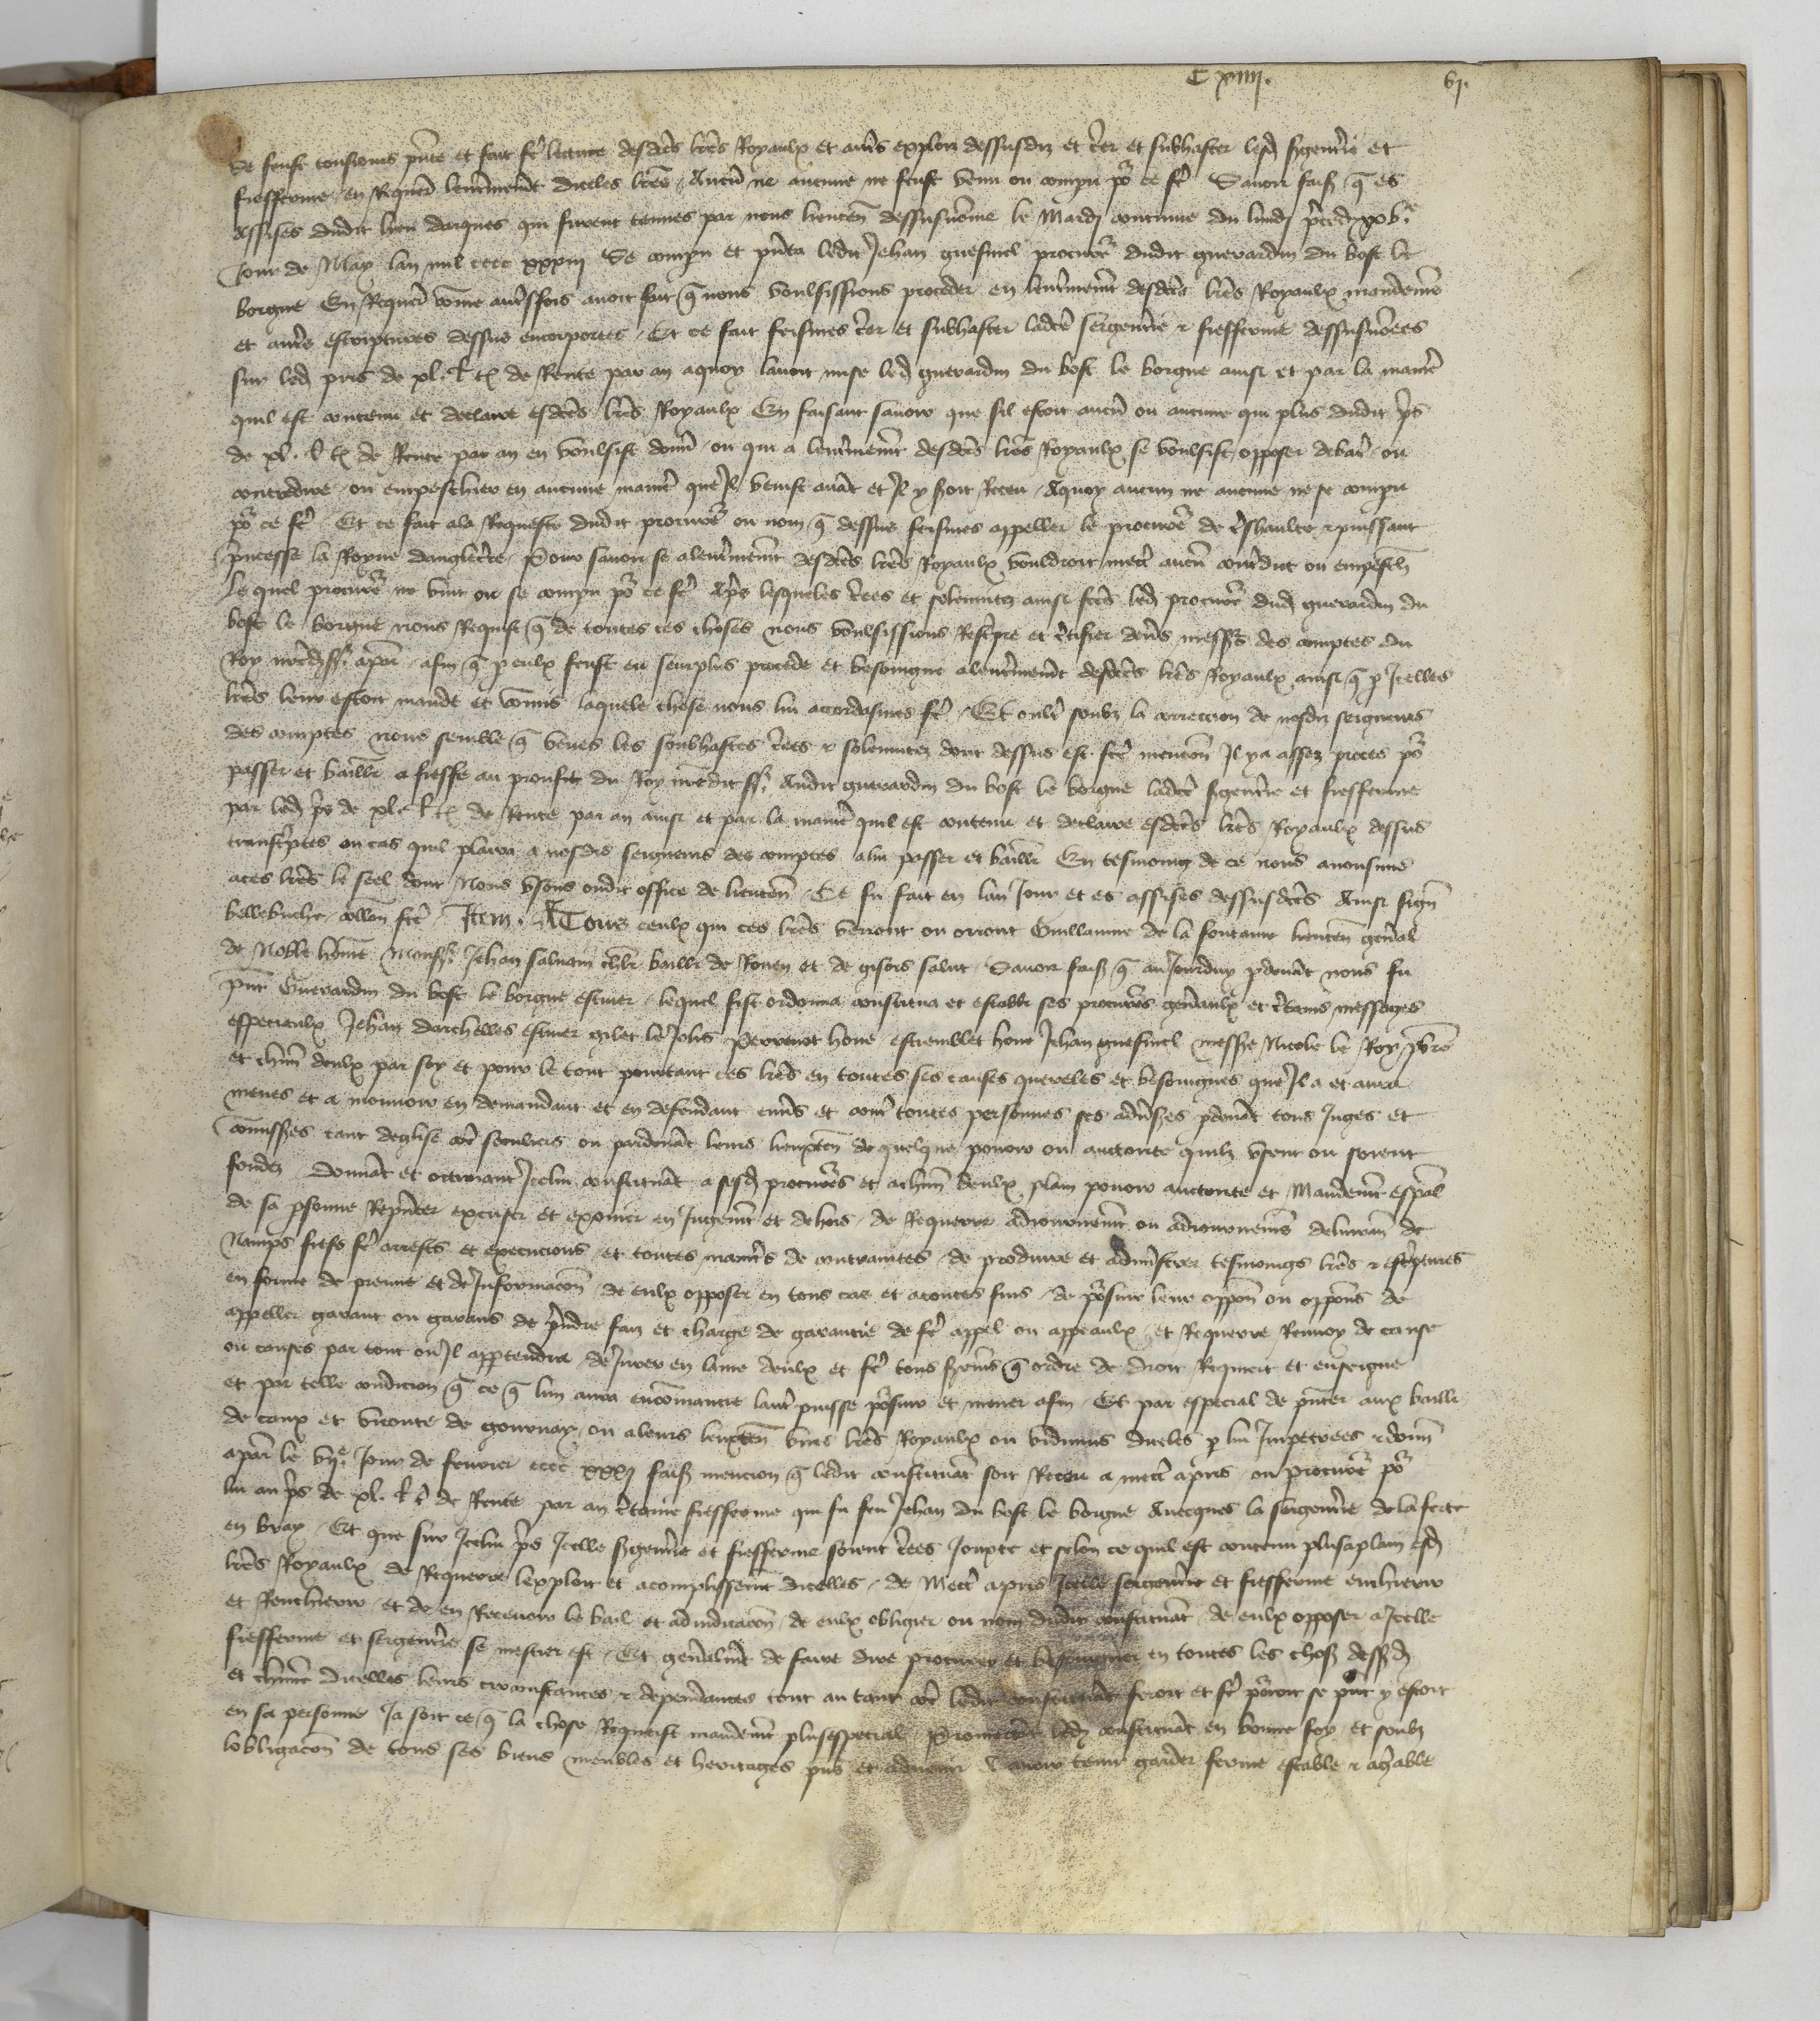 C xiiij. vj.
Se feust tousiours pñte et fait fẽ lecture desdes lrẽs Royaulx et aut̃s exploiz dessusdiz et c̃er et subhaster lesd sgent̃ie et
fiefferme en Requer̃ lent̃inemẽt diceles lrẽs Aucũ ne aucune ne feust venu ou compu põ ce fẽ Sauoir fais q̃ es
Assises dudit lieu darques qui furent tenues par nous lieuteñ dessusnõme le Mardj continue du lundj p̃ced xxvje
Jour de May lan mil cccc xxxiij Se compu et pñta ledit Jehan guesniel procureˀ dudit guerardin du bosc le
borgne En Requer̃ cõme aut̃sfois auoit fait q̃ nous voulsissions proceder en lent̃inemẽt desdes lrẽs Royaulx mandemẽs
et aut̃es escriptures dessus encorporees Et ce fait feismes c̃er et subhaster ladcẽ sergent̃ie ⁊ fiefferme dessusnõees
sur led pris de xl. ł t̃ de Rente par an aquoy lauoit mise led guerardin du bosc le borgne ainsi et par la manie᷑
quil est contenu et declaire esdes lrẽs Royaulx En faisant sauoir que sil estoit aucũ ou aucune qui plus dudit p̃s
de xl. ł t̃ de Rente par an en voulsist doñer ou qui a lent̃inemẽt desdes lrẽs Royaulx se voulsist opposer debat̃ ou
contredire ou empeschier en aucune manie᷑ que Jl venist auãt et Jl y seroit Receu Aquoy aucun ne aucune ne se compu
põ ce fẽ Et ce fait ala Requeste dudit procureˀ ou nom q̃ dessus feismes appeller le procureˀ de t̃shaulte ⁊ puissant
p̃ncesse la Royne dangleterre Pour sauoir se alent̃inemẽt desdes lrẽs Royaulx vouldroit mect̃ aucũ cont̃dit ou empesch
Le quel procureˀ ne vint ou se compu põ ce fẽ Ap̃s lesqueles c̃ees et solennitez ainsi fces led procureˀ dud guerardin du
bosc le borgne nous Requist q̃ de toutes ces choses nous voulsissions Resc̃pre et c̃tifier deũs messs̃ des comptes du
Roy nred sr̃ apar̃ afin q̃ p eulx feust eu seurplus procede et besoingne alent̃inemẽt desdes lrẽs Royaulx ainsi q̃ p Jcelles
lrẽs leur estoit mande et cõmis laquele chose nous lui acordasmes fẽ Et oult̃ soubz la correccion de nosdiz seigneurs
des comptes nous semble q̃ veues les soubhastes c̃ees ⁊ solennitez dont dessus est fcẽ mencõn Jl ya assez proces põ
passer et baillier a fieffe au proufit du Roy nredit sr̃ Audit guerardin du bosc le borgne ladcẽ sgent̃ie et fiefferme
par led p̃s de xl. ł t̃ de Rente par an ainsi et par la manie᷑ quil est contenu et declaire esdes lrẽs Royaulx dessus
transc̃ptes ou cas quil plaira a nosdis seigneurs des comptes alui passer et baillier En tesmoing de ce nous auonsmis
aces lrẽs le seel dont Nous vsons oudit office de lieuteñ Ce fu fait en lan Jour et es assises dessusdes Ainsi signe
bellebuche collõn fcẽ Jtem. A Tous ceulx qui ces lrẽs verront ou orront Guillaume de la fontaine lieuteñ gñal
de Noble hõme Monss̃ Jehan saluain chlr bailli de Rouen et de gisors salut Sauoir fais q̃ au Jourduy pdeuãt nous fu
pñt Guerardin du bosc le borgne escuier lequel fist ordonna constitua et establi ses procureˀs gñaulx et c̃tains messages
especiaulx Jehan darchelles escuier gilet le Jolis Perrenot houe estiemblet houe Jehan guesniel messe Nicole le Roy pbrẽ
et chũn deulx par soy et pour le tout pourtant ces lrẽs en toutes ses causes quereles et besoingnes que Jl a et aura
meues et a mouuoir en demandant et en defendant enũs et cont̃ toutes personnes ses adũsses pdeuãt tous Juges et
cõmisses tant deglise cõe seculiers ou pardeuãt leurs lieuxteñ de quelque pouoir ou auctorite quilz vsent ou soient
fondez Donnãt et octroiant Jcelui constituãt a sesd procureˀs et achũn deulx plain pouoir auctorite et Mandemẽt esp̃al
de sa psonne Rep̃nter excuser et exonier en Jugemẽt et dehors de Requerre Adiournemẽt ou adiournemẽs deliurañ de
Namps fiefs fẽ arrests et execucions et toutes manie᷑s de contraintes de produire et adminstrer tesmoings lrẽs ⁊ esc̃ptures
en forme de preuue et de Jnformacõn de eulx opposer en tous cas et atoutes fins de põsuir leur opp̃on ou opp̃ons de
appeller garant ou garans de p̃ndre fais et charge de garantie de fẽ appel ou appeaulx et Requerre Renuoy de cause
ou causes par tout ou Jl apptendra de Jurer en lame deulx et fẽ tous sermẽs q̃ ordre de droit Requiert et enseigne
et par telle condicion q̃ ce q̃ lun aura encõmancie laut̃ puisse põsuir et mener afin Et par especial de pñter aux bailli
de caux et vicõnte de gournay ou aleurs lieuxteñ vnes lrẽs Royaulx ou vidimus diceles p lui Jmpetrees ⁊ doñn
apar̃ le vije Jour de feurier cccc xxxij faiss mencion q̃ ledit constituãt soit Receu a mect̃ apris ou procureˀ põ
lui au p̃s de xl. ł t̃ de Rente par an c̃taine fiefferme qui fu feu Jehan du bosc le borgne Auecques la sergent̃ie de la ferte
en bray Et que sur Jcelui p̃s Jcelle sgent̃ie et fiefferme soient c̃ees Jouxte et selon ce quil est contenu plusaplain esd
lrẽs Royaulx de Requerre lexploit et acomplissemẽt dicelles de Mect̃ apris Jcelle sergent̃ie et fiefferme enchierir
et Renchierir et de en Receuoir le bail et adiudicacõn de eulx obligier ou nom dudit constituãt de eulx opposer a Jcelle
fiefferme et sergent̃ie se mestier est Et gñalmẽt de faire dire procurer et besoingnier en toutes les choses dessd
et chũne dicelles leurs circonstances ⁊ dependances tout autant cõe ledit constituãt feroit et fẽ põroit se pñt y estoit
en sa personne Ja soit ce q̃ la chose Requeist mandemẽt plusespecial Promectãt led constituãt en bonne foy et soubz
lobligacõn de tous ses biens meubles et heritages pñs et aduenir A auoir tenir garder ferme estable ⁊ agreable